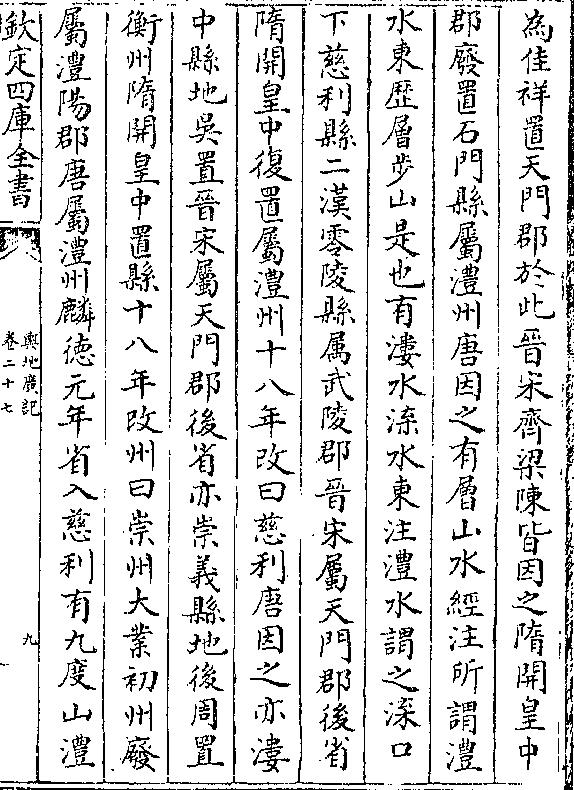 為佳祥置天門郡於此晉宋齊梁陳皆因之隋開皇中
郡廢置石門縣屬澧州唐因之有層山水經注所謂澧
水東歷層步山是也有漊水渫水東注澧水謂之渫口
下慈利縣二漢零陵縣属武陵郡晉宋屬天門郡後省
隋開皇中復置屬澧州十八年改曰慈利唐因之亦漊
中縣地吳置晉宋屬天門郡後省亦崇義縣地後周置
衡州隋開皇中置縣十八年改州曰崇州大業初州廢
屬澧陽郡唐屬澧州麟德元年省入慈利有九度山澧
欽定四庫全書
輿地廣記
卷二十七
九